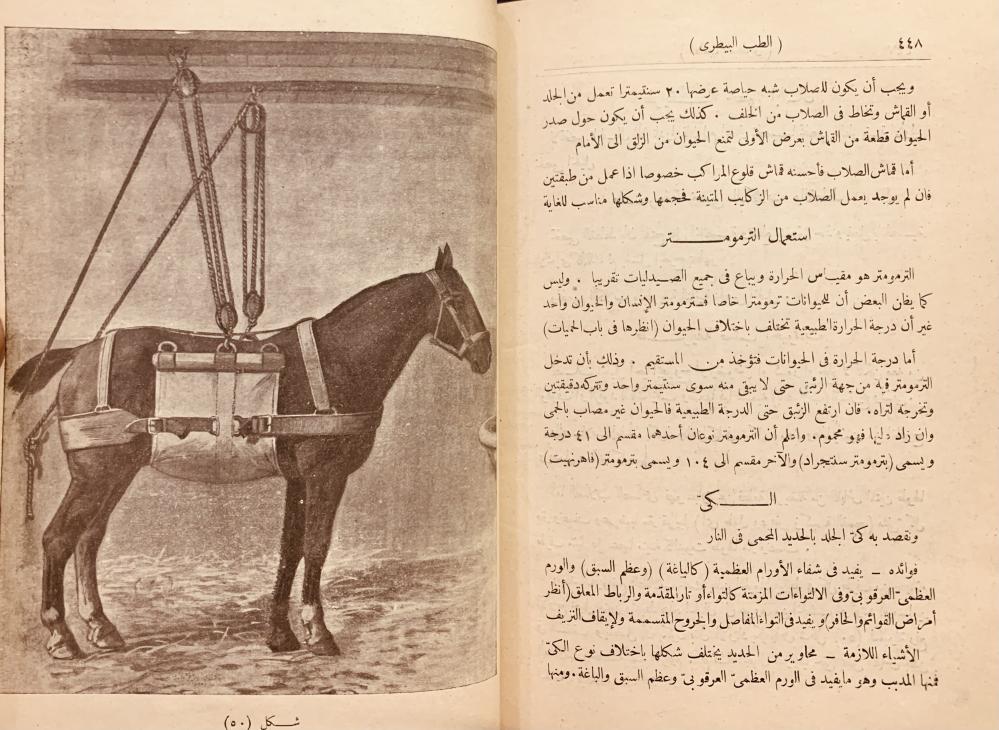 ٤٤٨
( الطب البيطرى )
ويجب أن يكون للصلاب شبه حياصة عرضها ٢٠ سنتيمترا تعمل من الجلد
أو القماش وتخاط فى الصلاب من الخلف . كذلك يجب أن يكون حول صدر
الحيوان قطعة من القماش بعرض الأولى لتمنع الحيوان من الزلق الى الأمام
أما قماش الصلاب فأحسنه قماش قلوع المراكب خصوصا اذا عمل من طبقتين
فان لم يوجد يعمل الصلاب من الزكايب المتينة فحجمها وشكلها مناسب للغاية
استعمال الترمومــــــتر
الترمومتر هو مقياس الحرارة ويباع فى جميع الصيدليات تقريبا . وليس
كما يظن البعض أن للحيوانات ترمومترا خاصا فترمومتر الإنسان والحيوان واحد
غير أن درجة الحرارة الطبيعية تختلف باختلاف الحيوان (انظرها فى باب الحميات)
أما درجة الحرارة فى الحيوانات فتؤخذ من المستقيم . وذلك بأن تدخل
الترمومتر فيه من جهة الزئبق حتى لا يبقى منه سوى سنتيمتر واحد وتتركه دقيقتين
وتخرجه لتراه . فان ارتفع الزئبق حتى الدرجة الطبيعية فالحيوان غير مصاب بالحمى
وان زاد عليها فهو محموم . واعلم أن الترمومتر نوعان أحدهما مقسم الى ٤١ درجة
ويسمى (بترمومتر سنتجراد) والآخر مقسم الى ١٠٤ ويسمى بترمومتر (فاهرنهيت)
الــــــكىّ
ونقصد به كىّ الجلد بالحديد المحمى فى النار
فوائده – يفيد فى شفاء الأورام العظمية (كالياغة) (وعظم السبق) والورم
العظمىّ العرقوبىّ وفى الالتواءات المزمنة كالتواء أوتار المقدّمة والرباط المعلق (أنظر
أمراض القوائم والحافر) ويفيد فى التواء المفاصل والجروح المتسممة ولإيقاف النزيف
الأشياء اللازمة – محاوير من الحديد يختلف شكلها باختلاف نوع الكىّ
فمنها المدبب وهو ما يفيد فى الورم العظمىّ العرقوبىّ وعظم السبق والباغة . ومنها
شـكل (٥٠)